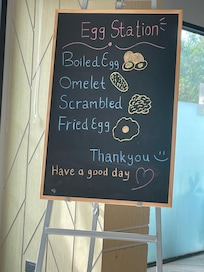 Egg Station
Boiled Egg
Omelet
Scrambled
Fried Egg
Thankyou
Have a good day